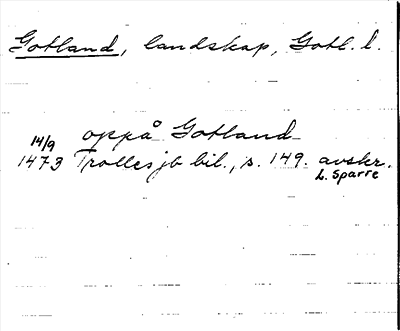 Gotland, landskap, Gotl. l.
oppå Gotland
14/9
1473 Trolles jb bil., s. 149. avskr.
L. Sparre